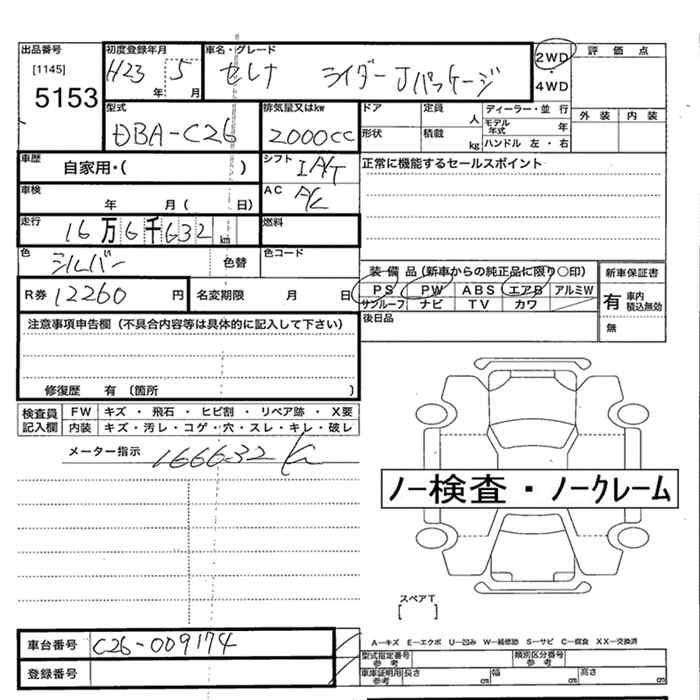 出品番号 初度登録年月 車名・グレード 評価点
[1145] H23 5 セレナ ライダーJパッケージ 2WD
5153 年 月 ・ 4WD
型式 排気量又はkw ドア 定員 人 ディーラー・並行 外装 内装
DBA-C26 2000cc 形状 積載 kg モデル年式 年
ハンドル 左・右
車歴 自家用・( ) シフト IA/T 正常に機能するセールスポイント
車検 年 月( 日) AC A/C
走行 16万6千632 km 燃料
色 シルバー 色替 色コード
装備品(新車からの純正品に限り○印) 新車保証書
R券 12260 円 名変期限 月 日 PS PW ABS エアB アルミW 有 車内積込無効
サンルーフ ナビ TV カワ 無
注意事項申告欄(不具合内容等は具体的に記入して下さい) 後日品
修復歴 有 (箇所 )
検査員記入欄 FW キズ・飛石・ヒビ割・リペア跡・X要
内装 キズ・汚レ・コゲ・穴・スレ・キレ・破レ
メーター指示 166632 K
ノー検査・ノークレーム
スペアT
[ ]
車台番号 C26-009174 A-キズ E-エクボ U-凹み W-補修跡 S-サビ C-腐食 XX-交換済
型式指定番号 参考 類別区分番号 参考
登録番号 車庫証明用 参考 長さ cm 幅 cm 高さ cm